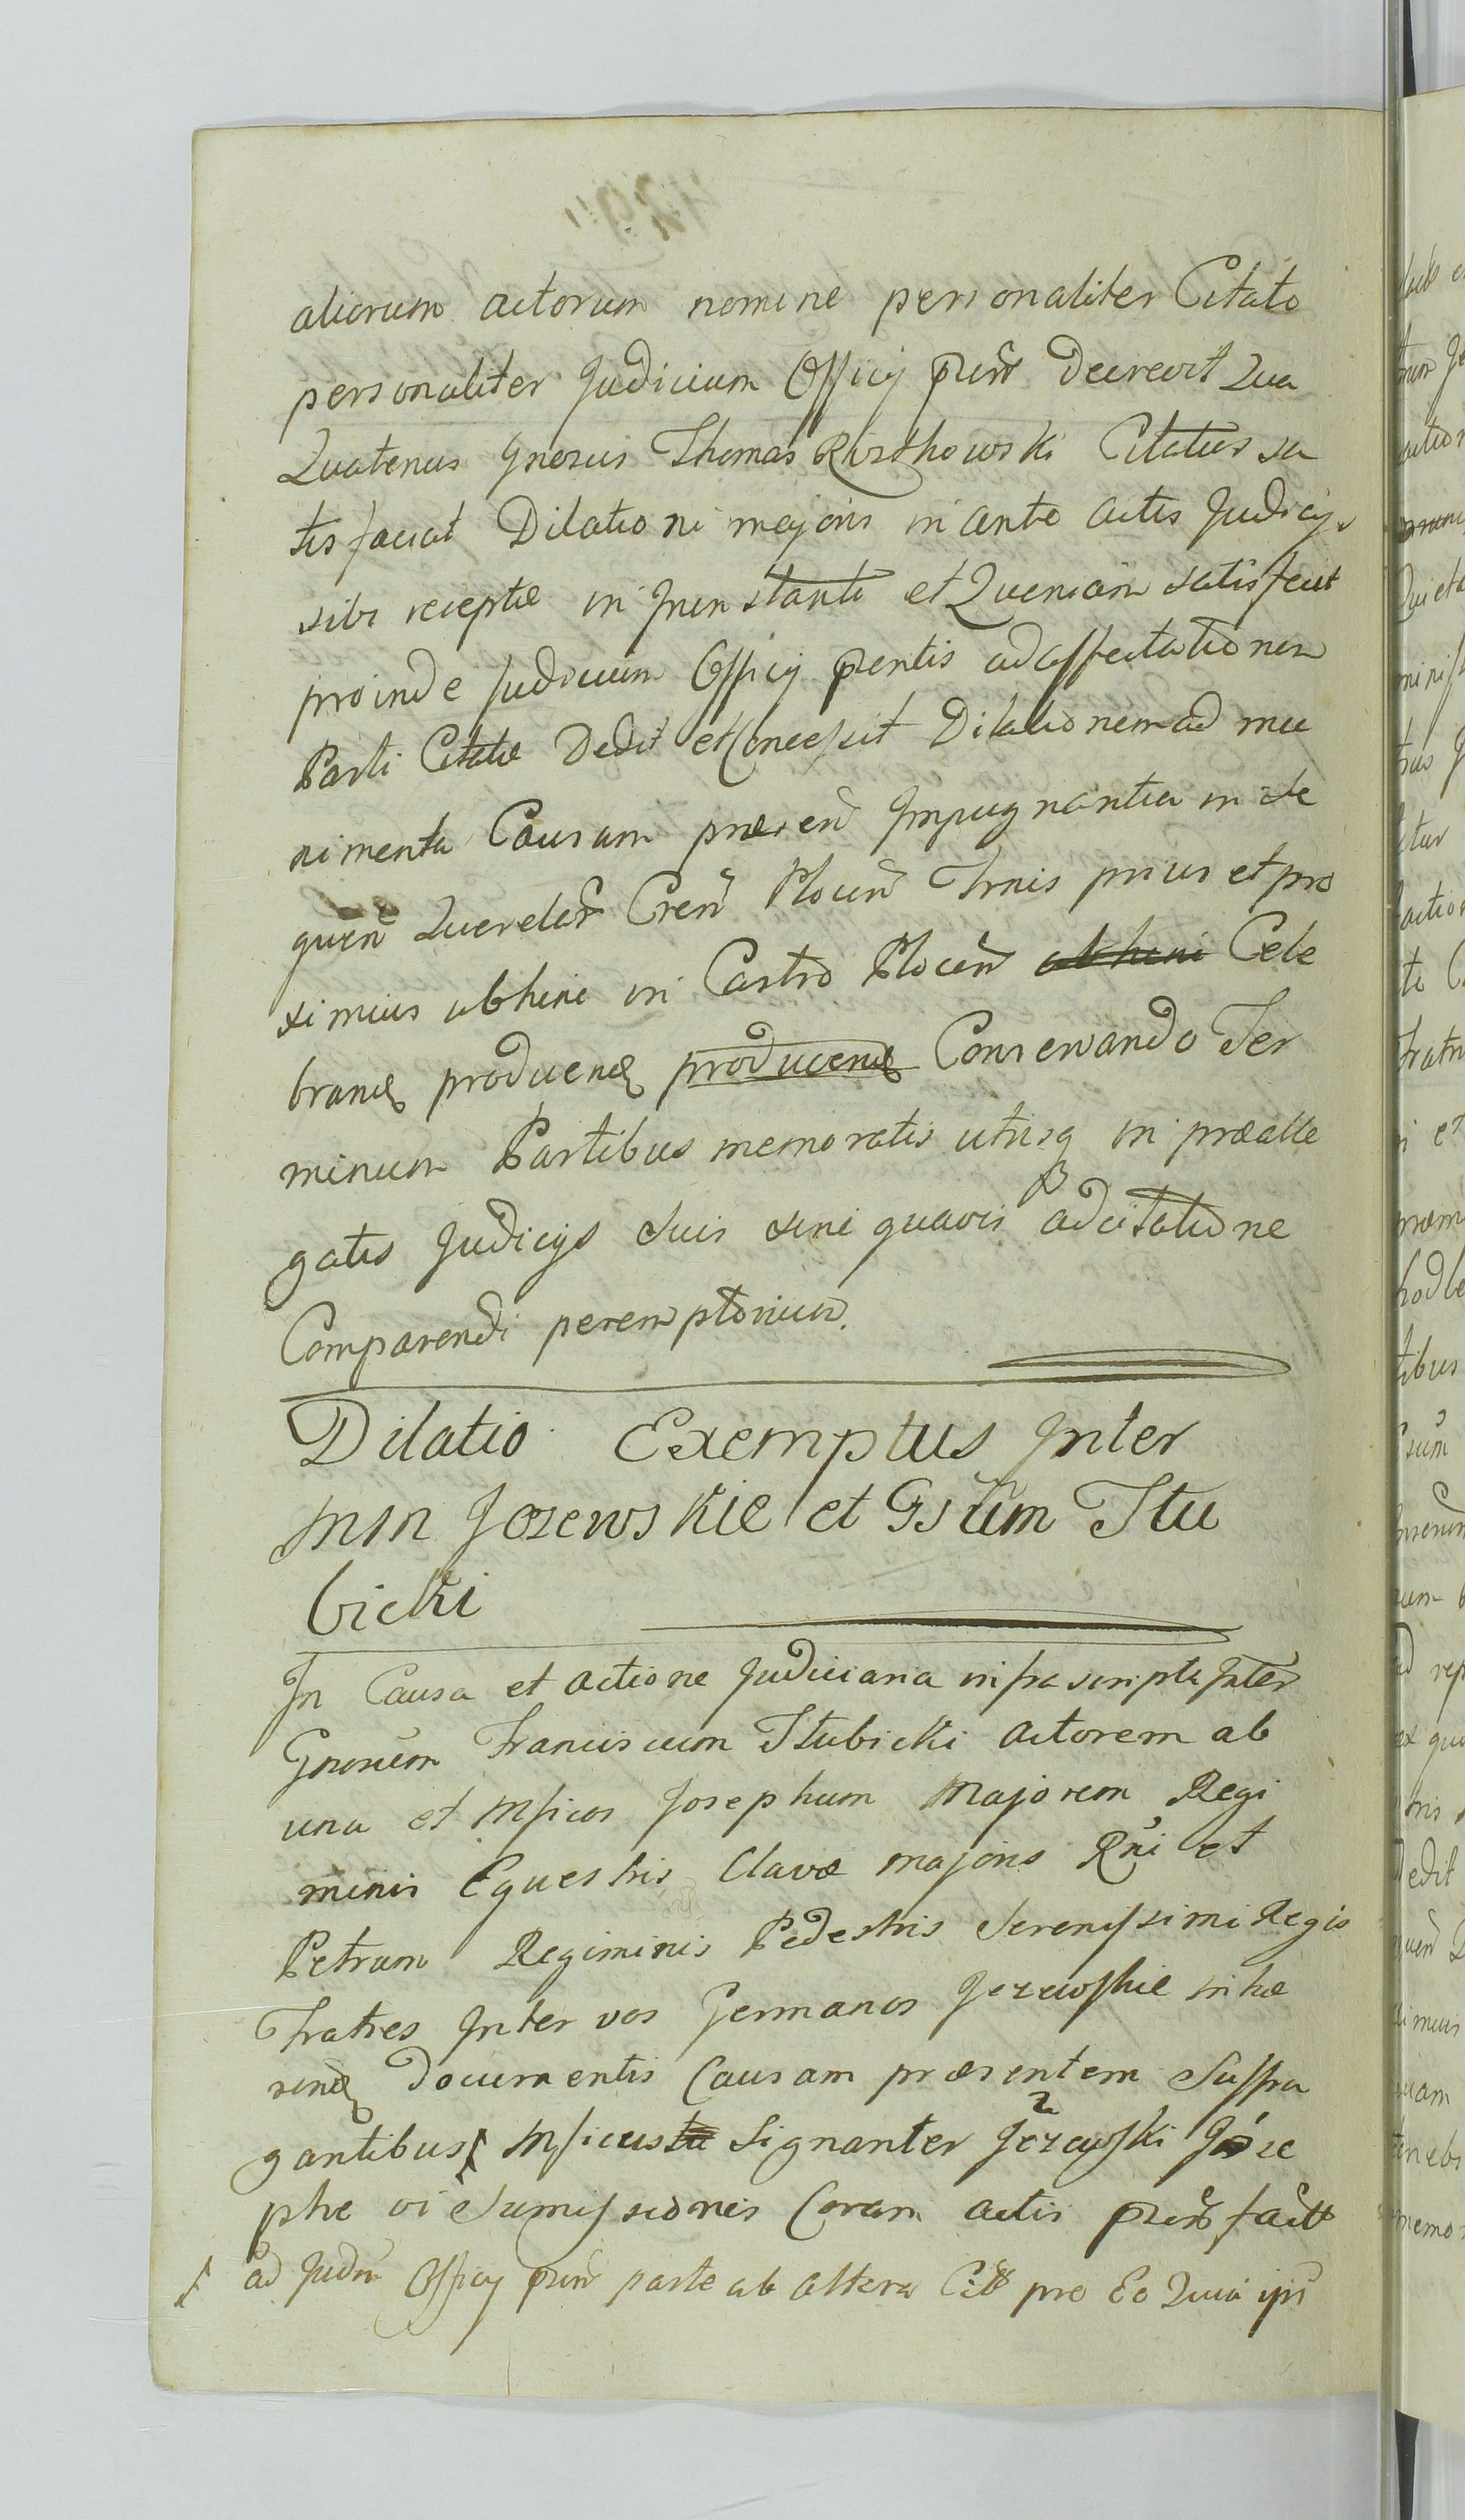 aliorum actorum nomine personaliter Citato
personaliter Judicium Officij pñs Decrevit Qua
Quatenus Gnosus Thomas Citatus sa
tisfaciat Dilationi majoris in ante actis Judicijs
sibi receptæ in Junstanti et Quoniam satisfecit
proinde Judicium Officij pentis ad affectationem
Parti Citatæ Dedit et Concessit Dilationem ad mu
nimenta Causam præsen Impugnantia in se
quen Querelar Cren Plocen Trnis prius et pro
ximius abhinc in Castro Plocen abhinc Cele
branq producenq producenq Conservando Ter
minum Partibus memoratis utrisq in prealle
gatis Judicijs suis sine quavis adcitatione
Comparendi peremptorium.
Dilatio Exemptus Inter
MM Jezewskie et Gsum Stu
bicki
In Causa et actione Judiciaria infrascripta Inter
Gnosum Franciscum Stubicki actorem ab
una et Mficos Josephum Majorem Regi
minis Equestris Clavæ majoris Rni et
Petrum Regiminis Pedestris Serenissimi Regis
Fratres Inter vos Germanos Jezewskie inhæ
renq Documentis Causam præsentem Suffra
gantibus Mficus Signanter Jezewski Jose
phe vi Sumissionis Coram actis pñs fact
ad Judm Officij pñs parte ab altera Citt pro Eo Quia ipsi